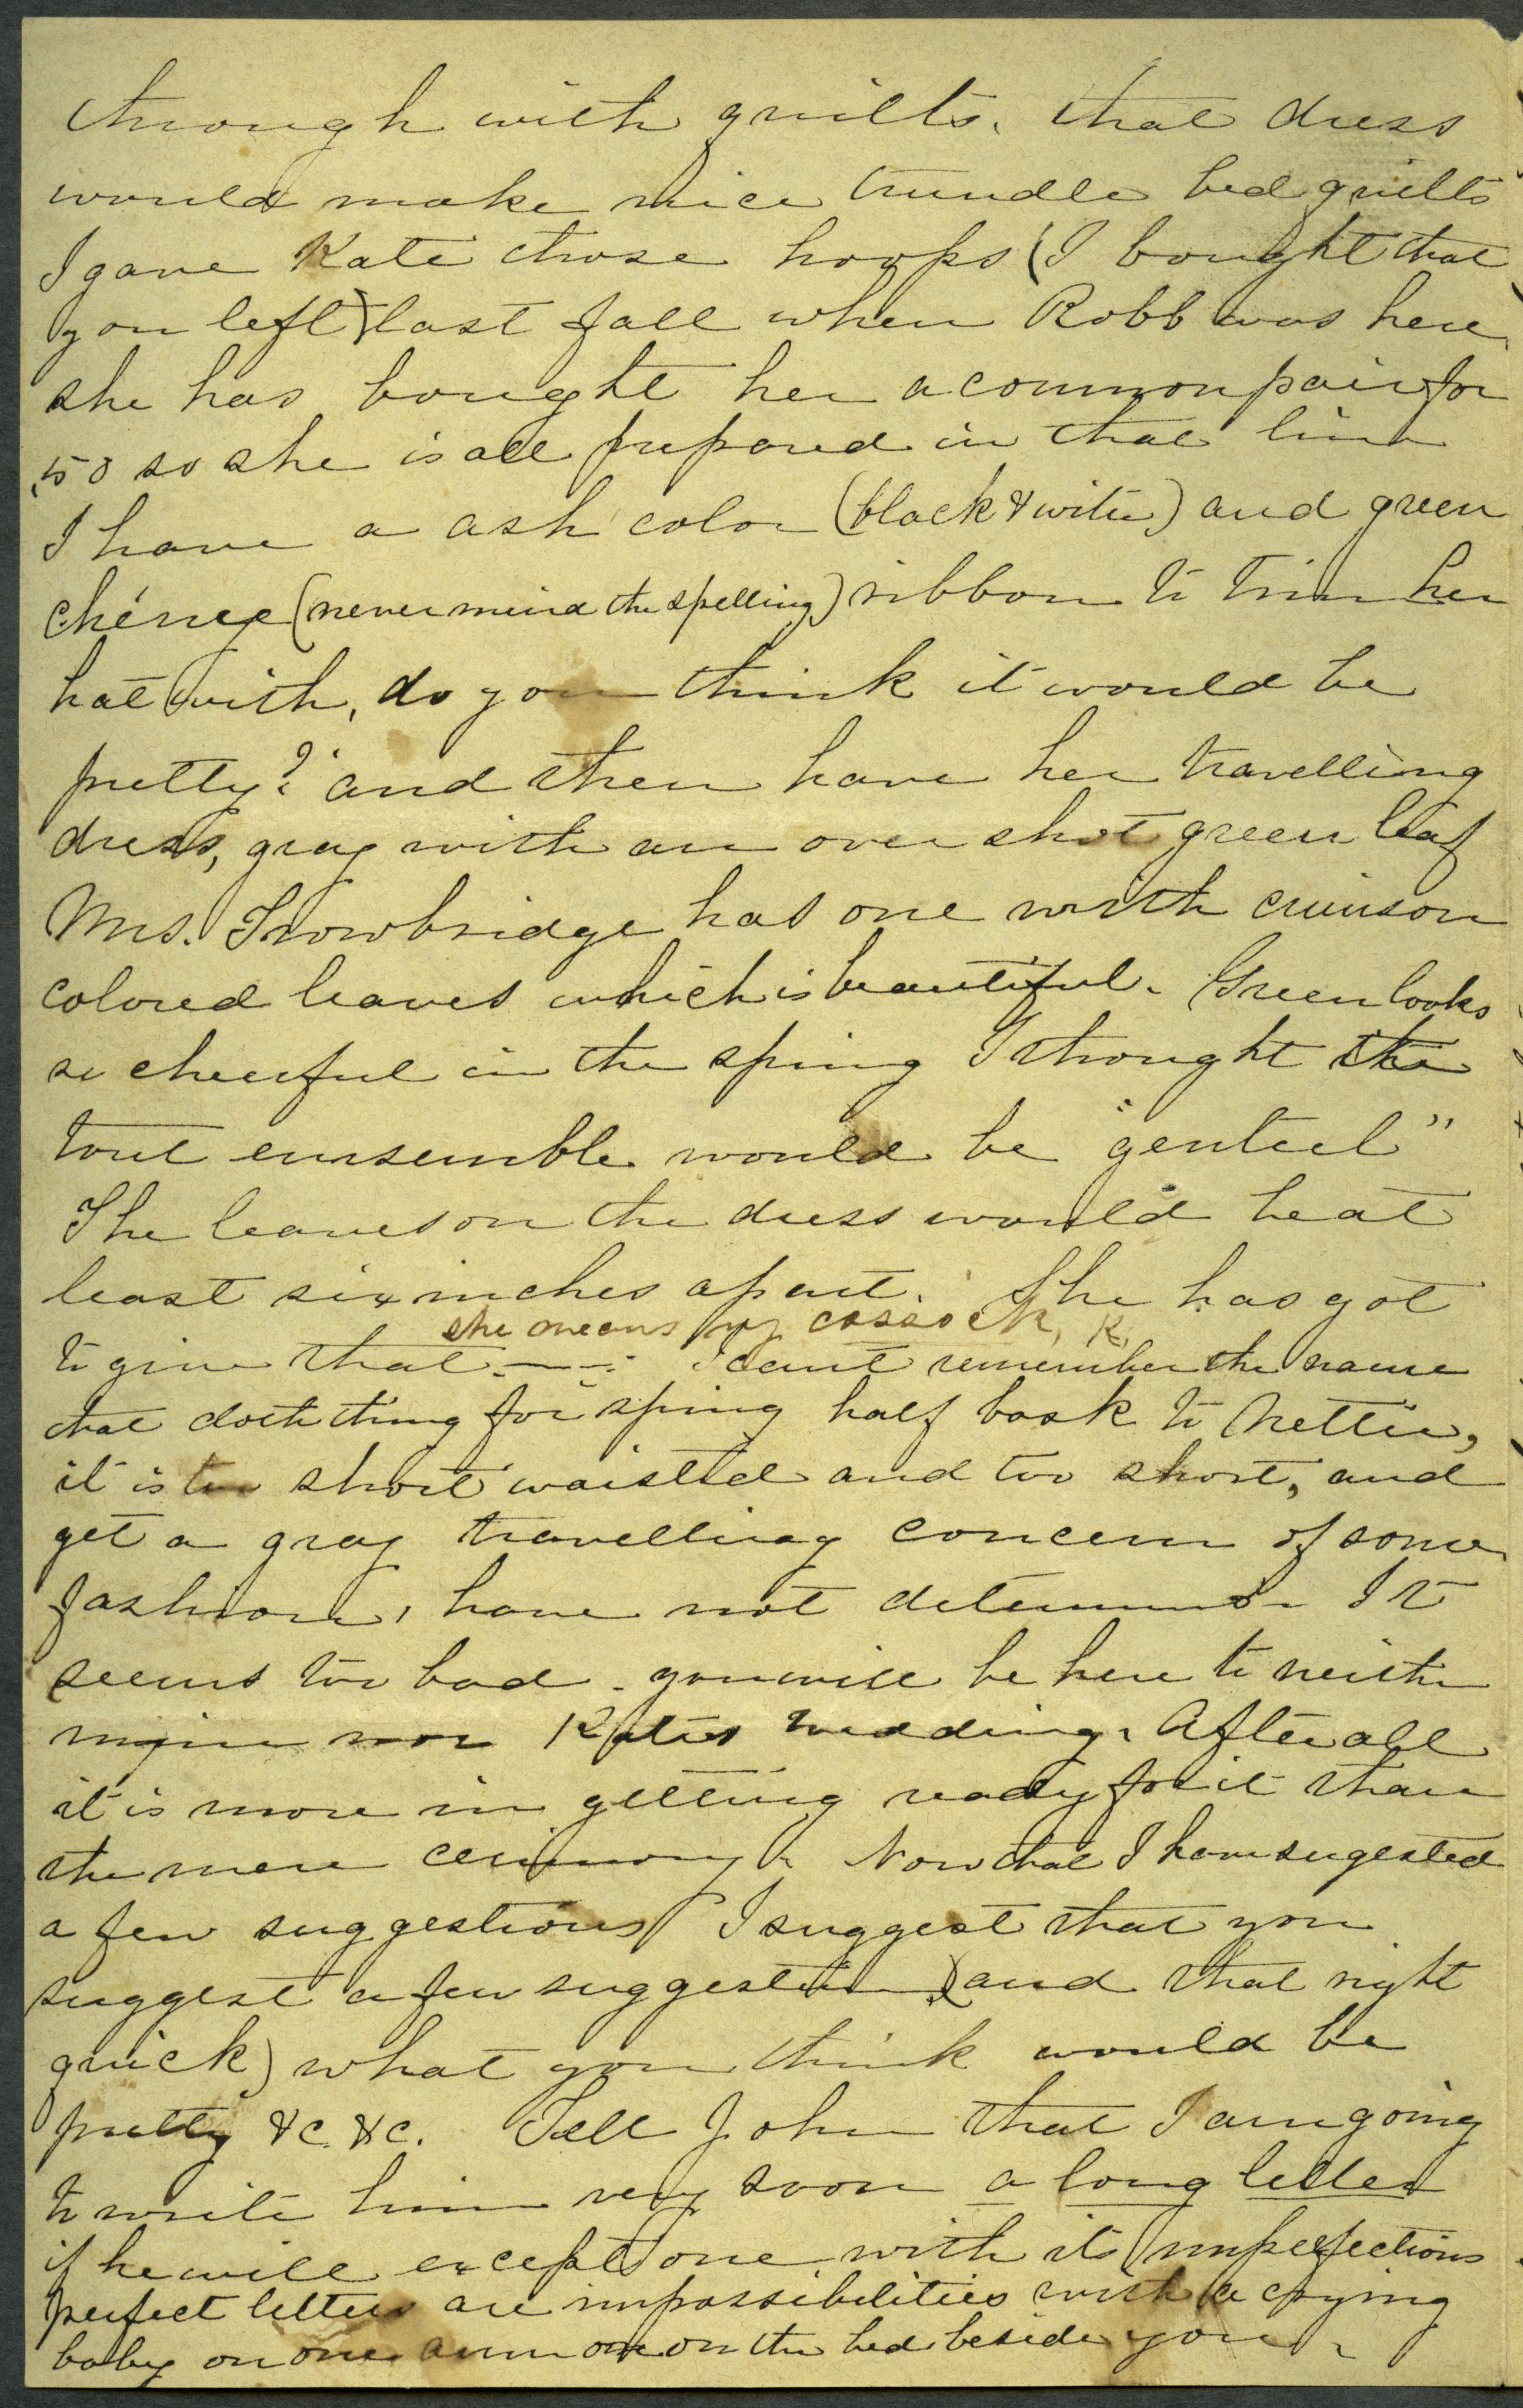 through with quilts. that dress
would make nice trundle bed quilts
I gave Kate those hoops (I bought that
you left) last fall when Robb was here,
she has bought her a common pair for
.50 so she is all prepared in that line
I have a ash color (black & wite) and green
chénee (never mind the spelling) ribbon to trim her
hat with, do you think it would be
pretty? and then have her travelling
dress, gray with an over shot green leaf
Mrs. Trowbridge has one with crimson
colored leaves which is beautiful. Green looks
so cheerful in the spring I thought the
tout ensemble would be "genteel"
The leaves on the dress would be at
least six inches apart. She has got
she means my cassock, K.
to give that - - - I cant remember the name
that cloth thing for spring half bask to Nettie,
it is too short waisted and too short, and
get a gray travelling concern of some
fashion, have not determined It
seems too bad you will be here to neither
mine nor Katies wedding. After all
it is more in getting ready for it than
the mere cerimony. Now that I have sugested
a few suggestions I suggest that you
suggest a few suggestion (and that right
quick) what you think would be
pretty &c. &c. Tell John that I am going
to write him very soon a long letter
if he will except one with its imperfections
perfect letters are impossibilities with a crying
baby on one arm one on the bed beside you.